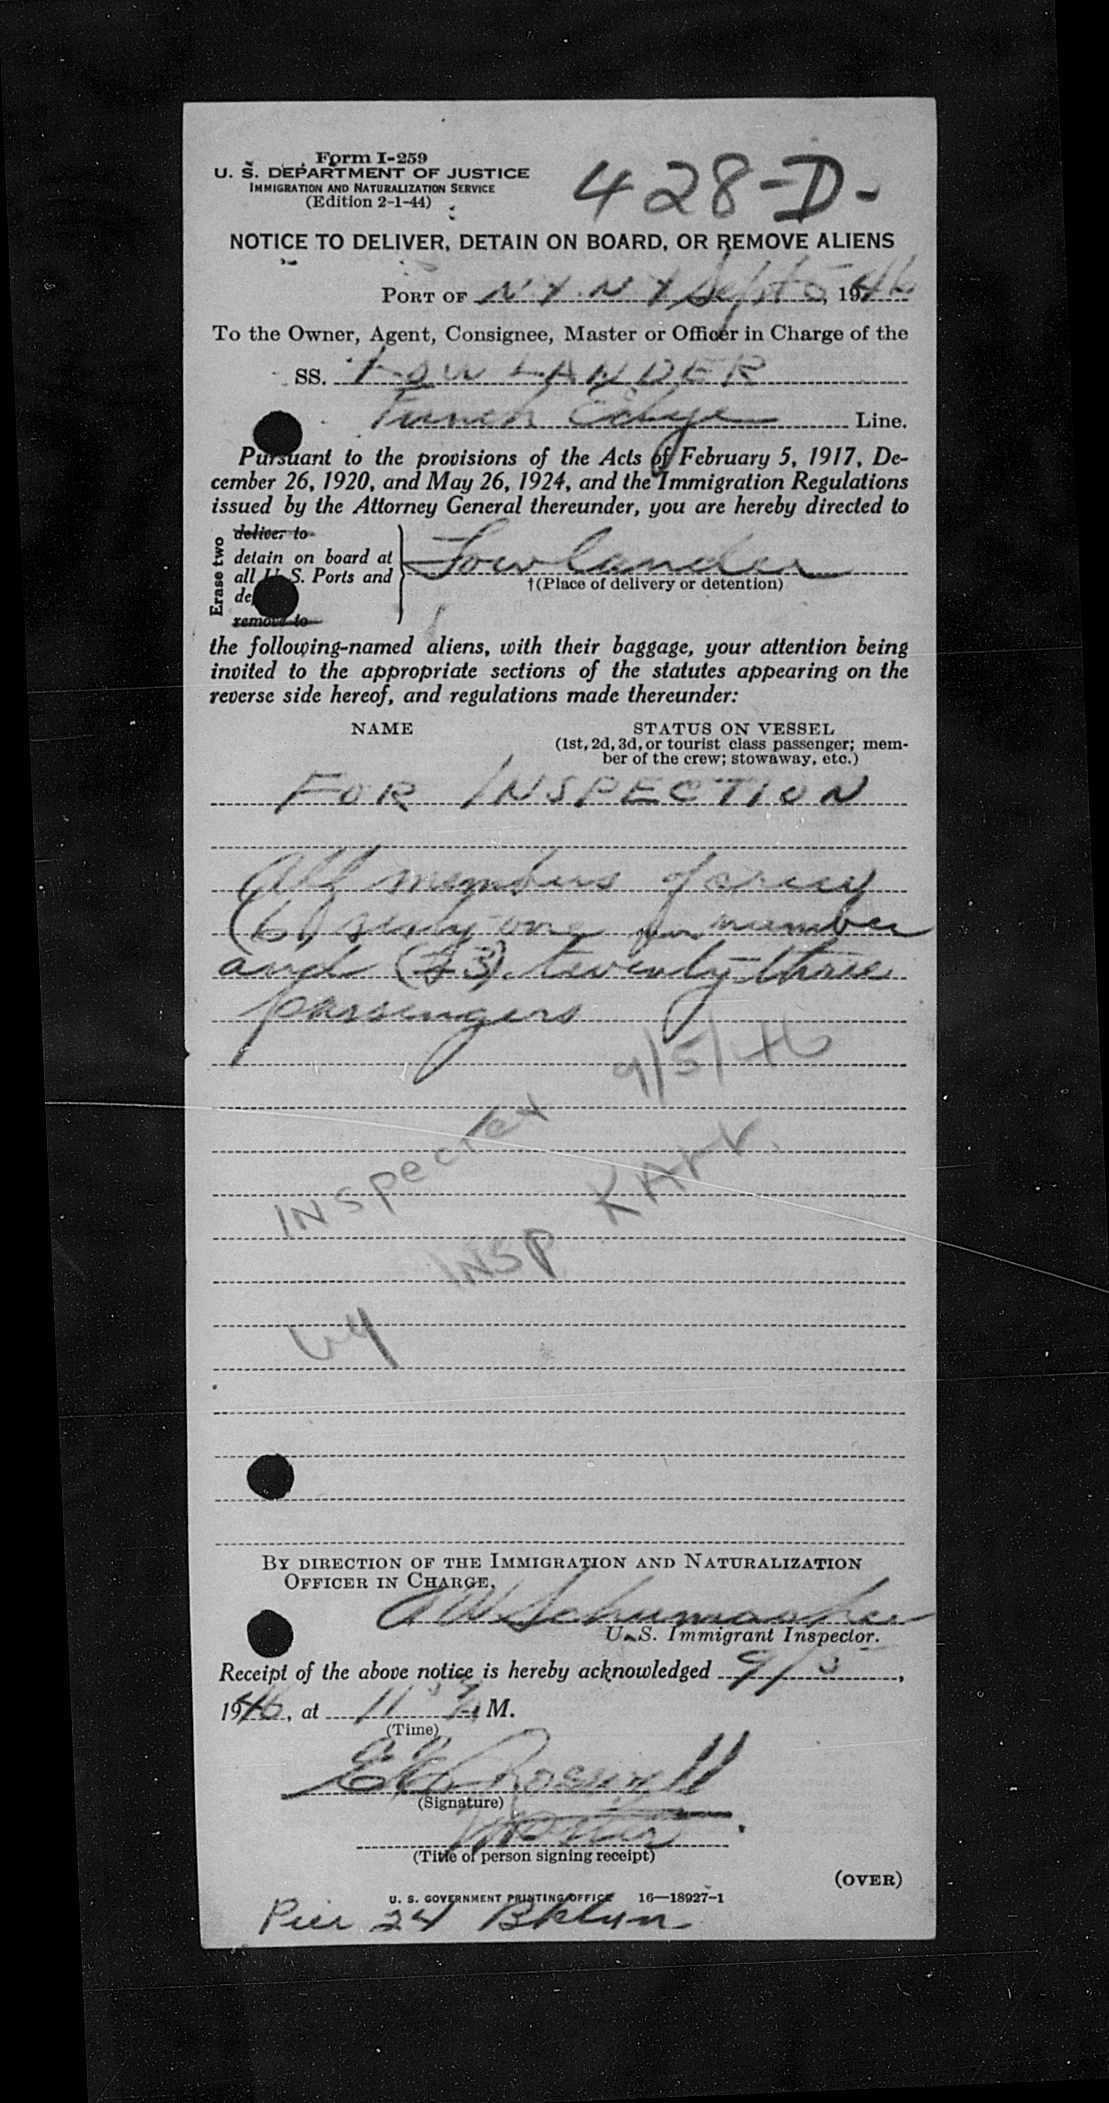 Form I-259
U. S. DEPARTMENT OF JUSTICE
IMMIGRATION AND NATURALIZATION SERVICE
(Edition 2-1-44)
428-D-
NOTICE TO DELIVER, DETAIN ON BOARD, OR REMOVE ALIENS
PORT OF N Y. N Y Sept 5, 1946
To the Owner, Agent, Consignee, Master or Officer in Charge of the
SS. LOWLANDER
Funch Edye Line.
Pursuant to the provisions of the Acts of February 5, 1917, De-
cember 26, 1920, and May 26, 1924, and the Immigration Regulations
issued by the Attorney General thereunder, you are hereby directed to
Erase two
deliver to
detain on board at
all U. S. Ports and
de
remove to
Lowlander
†(Place of delivery or detention)
the following-named aliens, with their baggage, your attention being
invited to the appropriate sections of the statutes appearing on the
reverse side hereof, and regulations made thereunder:
NAME
STATUS ON VESSEL
(1st, 2d, 3d, or tourist class passenger; mem-
ber of the crew; stowaway, etc.)
FOR INSPECTION
All members of crew
(61) sixty-one in number
and (23) twenty-three
passengers
Inspected 9/5/46
by INSP KARR.
BY DIRECTION OF THE IMMIGRATION AND NATURALIZATION
OFFICER IN CHARGE,
Schumacher
U. S. Immigrant Inspector.
Receipt of the above notice is hereby acknowledged 9/5,
1946, at 11 A M.
(Time)
(Signature)
(Title of person signing receipt)
(OVER)
U. S. GOVERNMENT PRINTING OFFICE 16—18927-1
Pier 24 Bklyn